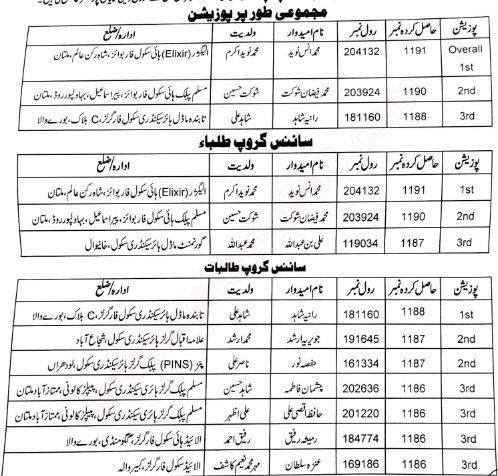 مجموعی طور پر پوزیشن
پوزیشن حاصل کردہ نمبر رول نمبر نام امیدوار ولدیت ادارہ/ضلع
Overall 1st 1191 204132 محمد انس نوید محمد نوید اکرم الیگزر (Elixir) ہائی سکول فار بوائز، شاہ رکن عالم، ملتان
2nd 1190 203924 محمد فیضان شوکت شوکت حسین مسلم پبلک ہائی سکول فار بوائز، پیراسماعیل، بہاولپور روڈ، ملتان
3rd 1188 181160 رانیہ شاہد شاہد علی تابندہ ماڈل ہائر سیکنڈری سکول فار گرلز، C بلاک، بورے والا
سائنس گروپ طلباء
پوزیشن حاصل کردہ نمبر رول نمبر نام امیدوار ولدیت ادارہ/ضلع
1st 1191 204132 محمد انس نوید محمد نوید اکرم الیگزر (Elixir) ہائی سکول فار بوائز، شاہ رکن عالم، ملتان
2nd 1190 203924 محمد فیضان شوکت شوکت حسین مسلم پبلک ہائی سکول فار بوائز، پیراسماعیل، بہاولپور روڈ، ملتان
3rd 1187 119034 علی بن عبداللہ محمد عبداللہ گورنمنٹ ماڈل ہائر سیکنڈری سکول، خانیوال
سائنس گروپ طالبات
پوزیشن حاصل کردہ نمبر رول نمبر نام امیدوار ولدیت ادارہ/ضلع
1st 1188 181160 رانیہ شاہد شاہد علی تابندہ ماڈل ہائر سیکنڈری سکول فار گرلز، C بلاک، بورے والا
2nd 1187 191645 جویریہ ارشد محمد ارشد علامہ اقبال گرلز ہائر سیکنڈری سکول، شجاع آباد
2nd 1187 161334 حفصہ نور ناصر علی پنز (PINS) پبلک گرلز ہائر سیکنڈری سکول، لودھراں
3rd 1186 202636 چشمان فاطمہ شاہد حسین مسلم پبلک گرلز ہائر سیکنڈری سکول، پیپلز کالونی، ممتاز آباد ملتان
3rd 1186 201220 حافظہ اقصیٰ علی علی اظہر مسلم پبلک گرلز ہائر سیکنڈری سکول، پیپلز کالونی، ممتاز آباد ملتان
3rd 1186 184774 رمیشہ رفیق رفیق احمد الائیڈ ہائی سکول فار گرلز، گگومنڈی، بورے والا
3rd 1186 169186 عنزہ سلطان مہر محمد نعیم کاشف الائیڈ سکول فار گرلز، کبیر والہ